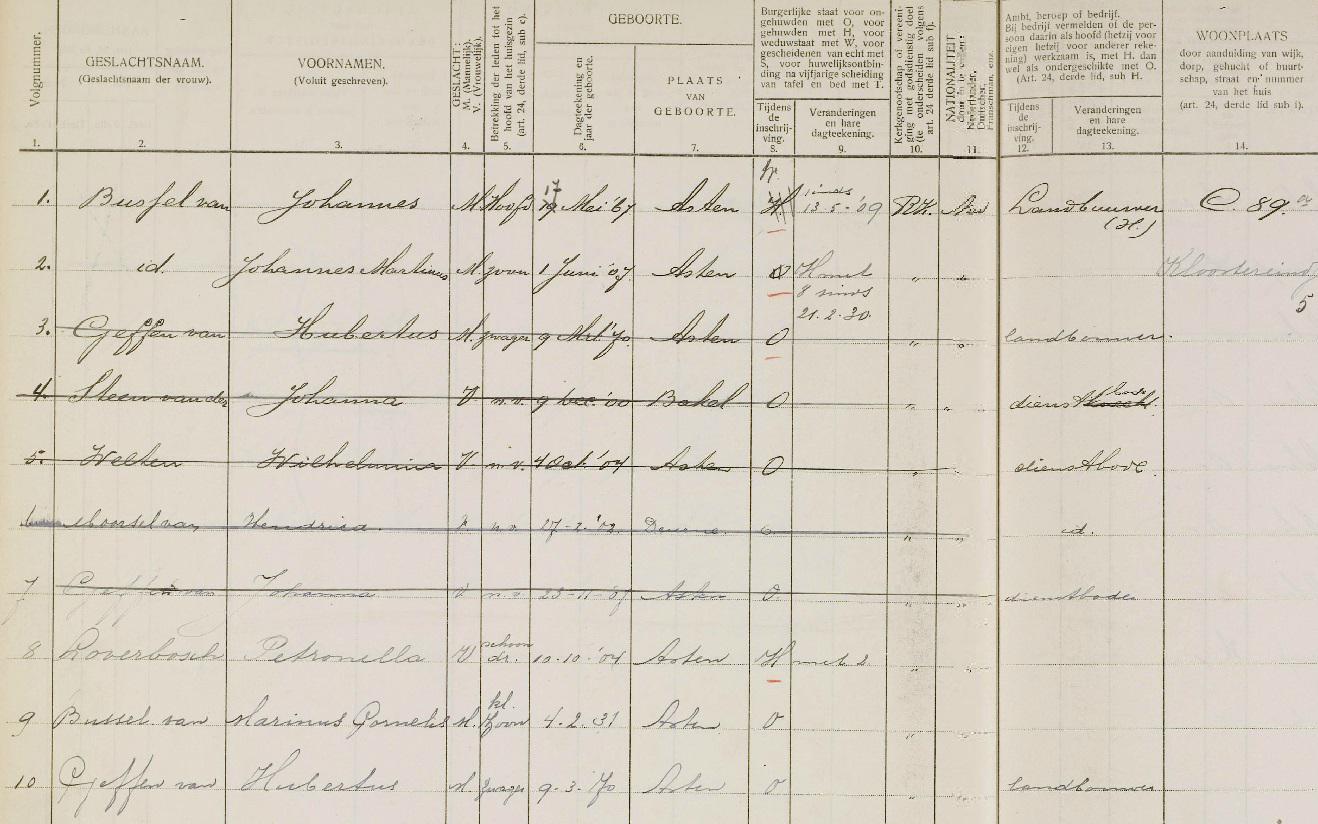 Volgnummer.
GESLACHTSNAAM.
(Geslachtsnaam der vrouw).
VOORNAMEN.
(Voluit geschreven).
GESLACHT:
M. (Mannelijk).
V. (Vrouwelijk).
Betrekking der leden tot het
hoofd van het huisgezin
(art. 24, derde lid, sub c).
GEBOORTE.
Dagteekening en
jaar der geboorte.
PLAATS
VAN
GEBOORTE.
Burgerlijke staat voor on-
gehuwden met O, voor
gehuwden met H, voor
weduwstaat met W, voor
gescheidenen van echt met
S, voor huwelijksontbin-
ding na vijfjarige scheiding
van tafel en bed met T.
Tijdens
de
inschrij-
ving.
Veranderingen
en hare
dagteekening.
Kerkgenootschap of vereeni-
ging met godsdienstig doel
(te onderscheiden volgens
art. 24 derde lid sub f).
NATIONALITEIT
Nederlander,
Duitscher,
Franschman, enz.
Ambt, beroep of bedrijf.
Bij bedrijf vermelden of de per-
soon daarin als hoofd (hetzij voor
eigen hetzij voor anderer reke-
ning) werkzaam is, met H. dan
wel als ondergeschikte met O.
(Art. 24, derde lid, sub H.
Tijdens
de
inschrij-
ving.
Veranderingen
en hare
dagteekening.
WOONPLAATS
door aanduiding van wijk,
dorp, gehucht of buurt-
schap, straat en nummer
van het huis
(art. 24, derde lid sub i).
1. 2. 3. 4. 5. 6. 7. 8. 9. 10. 11. 12. 13. 14.
1. Bussel van Johannes M. Hoofd 17 Mei '67 Asten H sinds 13-5-'09 R.K. Ned Landbouwer (H.) C. 89.
2. id. Johannes Martinus M. zoon 1 Juni '07 Asten O H met 8 sinds 21.2.30. " " Kloostereind 5
3. Geffen van Hubertus M. zwager 9 Mrt '70 Asten O " " landbouwer.
4. Steen van der Johanna V n.v. 9 Dec '00 Bakel O " " dienstbode
5. Welten Wilhelmina V n.v. 4 Oct '04 Asten O " " dienstbode
6 Moorsel van Hendrica V n.v. 27-2-'02 Deurne O " " id.
7 Geffen van Johanna V n.v. 23-11-'07 Asten O " " dienstbode
8 Loverbosch Petronella V schoon dr. 10-10-'04 Asten H met 2 " "
9 Bussel van Marinus Cornelis M. kl. zoon 4.2.31 Asten O " "
10 Geffen van Hubertus M. zwager 9-3-70 Asten O " " landbouwer